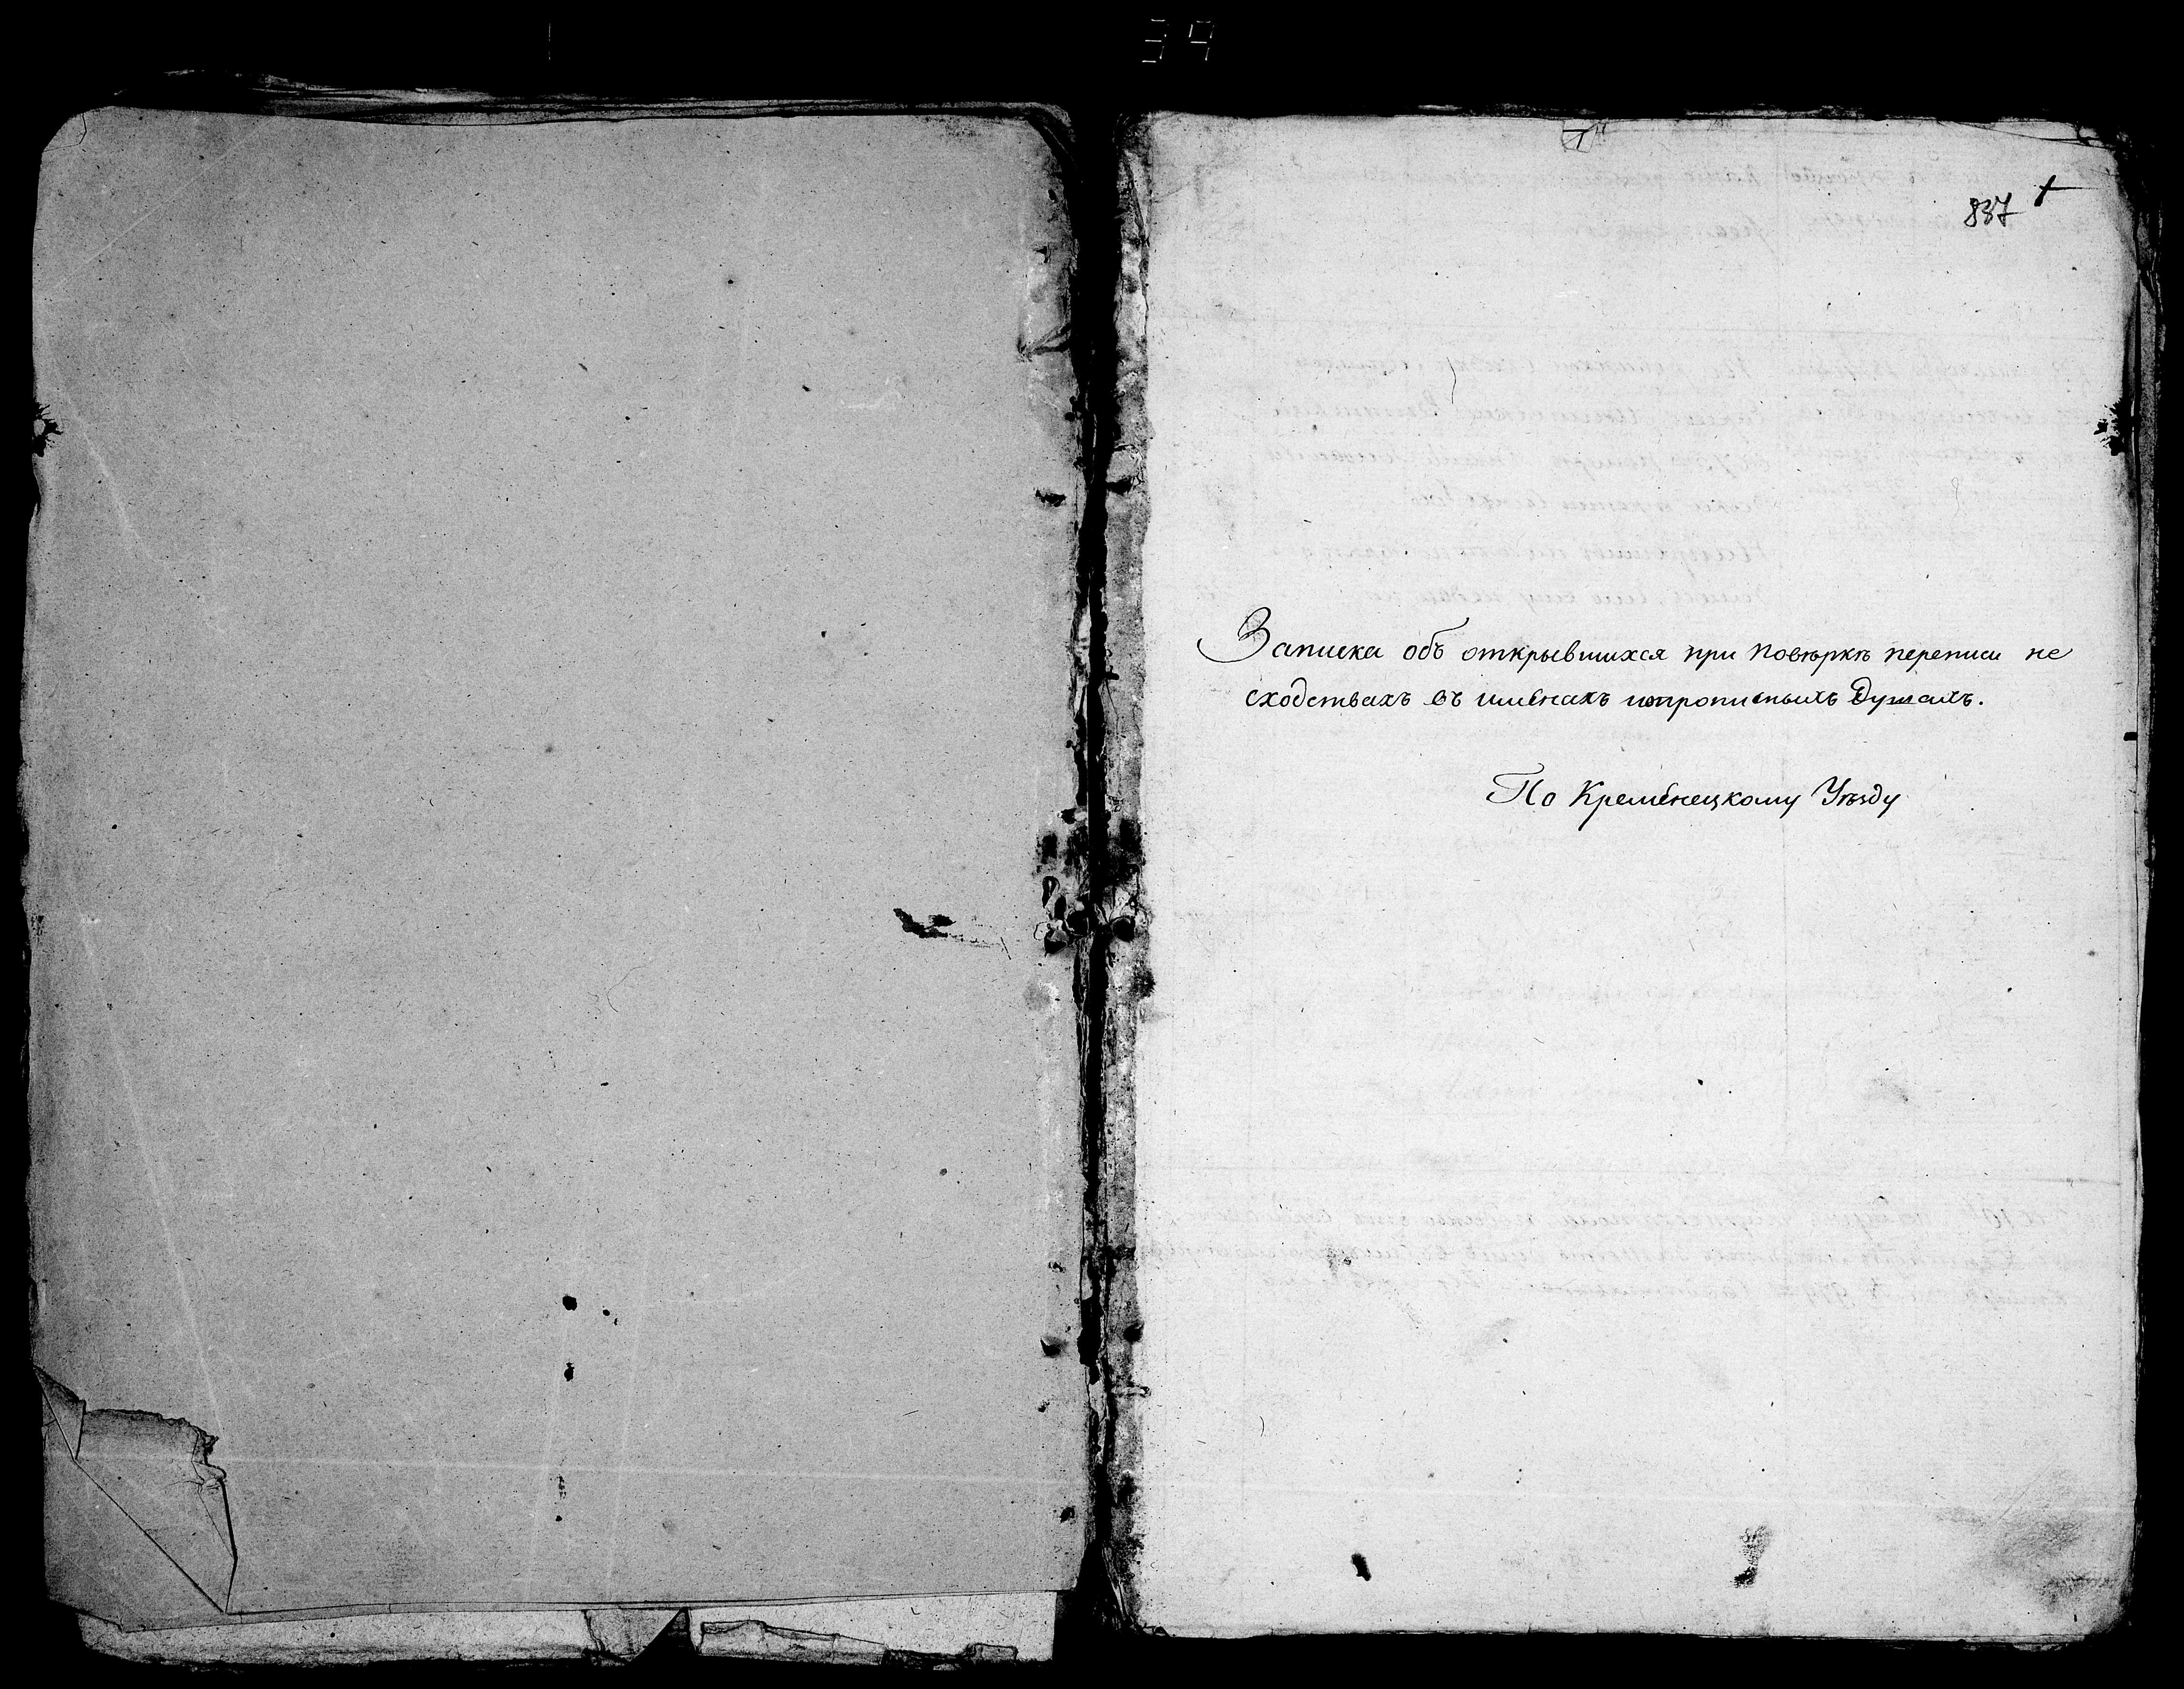 837
Записка объ открывшихся при повѣркѣ переписи не
сходствахъ въ имѣнахъ ипрописныхъ Душахъ.
По Кременецкому Уѣзду